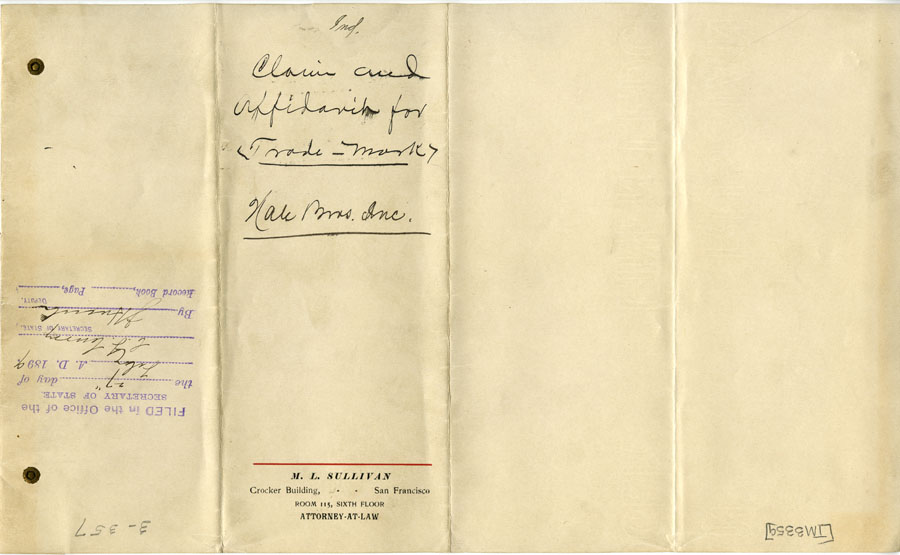 Ind.
Claim and
Affidavit for
Trade-Mark
Hale Bros. Inc.
M. L. SULLIVAN
Crocker Building, - - San Francisco
ROOM 115, SIXTH FLOOR
ATTORNEY-AT-LAW
FILED in the Office of the
SECRETARY OF STATE
the 27" day of
A. D. 189
SECRETARY OF STATE.
By DEPUTY.
Record Book, Page,
3-357
[TM3359]